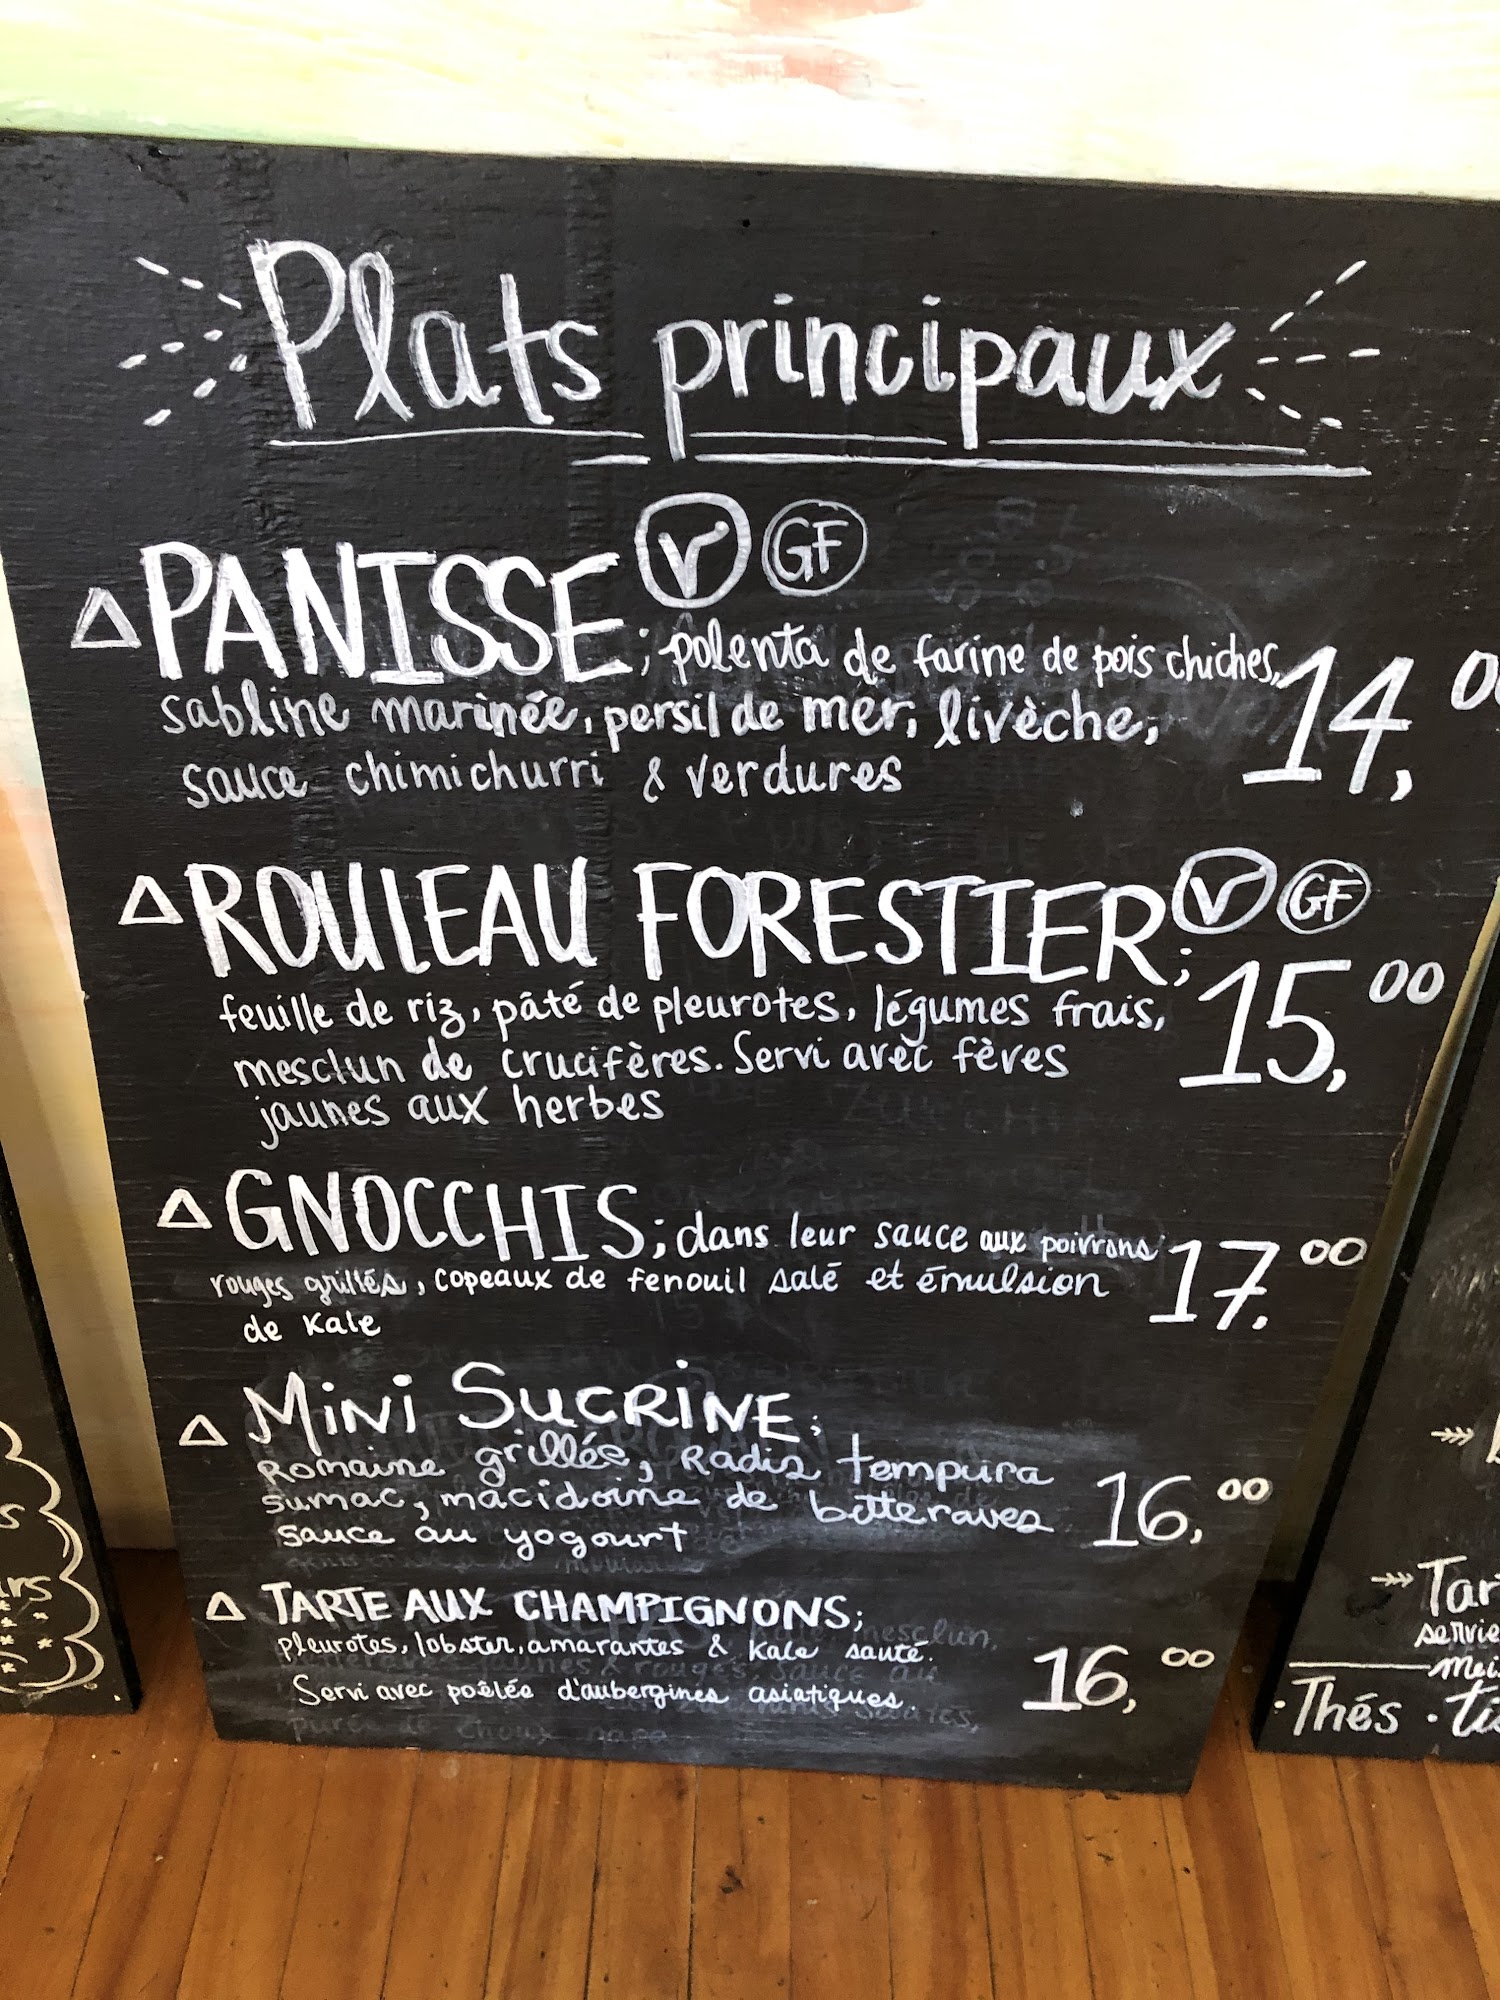 Plats principaux
△ PANISSE V GF ; polenta de farine de pois chiches,
sabline marinée, persil de mer, livèche,
sauce chimichurri & verdures
14,00
△ ROULEAU FORESTIER V GF ;
feuille de riz, pâté de pleurotes, légumes frais,
mesclun de crucifères. Servi avec fèves
jaunes aux herbes
15,00
△ GNOCCHIS; dans leur sauce aux poivrons
rouges grillés, copeaux de fenouil salé et émulsion
de Kale
17,00
△ Mini SUCRINE;
Romaine grillée, Radis tempura
sumac, macidoine de betteraves
sauce au yogourt
16,00
△ TARTE AUX CHAMPIGNONS;
pleurotes, lobster, amarantes & Kale sauté.
Servi avec poêlée d'aubergines asiatiques.
16,00
Tar
servie
·Thés · tis